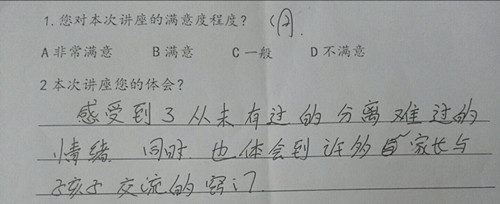 1.您对本次讲座的满意度程度? (A).
A 非常满意 B 满意 C 一般 D 不满意
2 本次讲座您的体会?
感受到了从未有过的分离难过的
情绪. 同时也体会到许多 家长与
孩子交流的窍门.